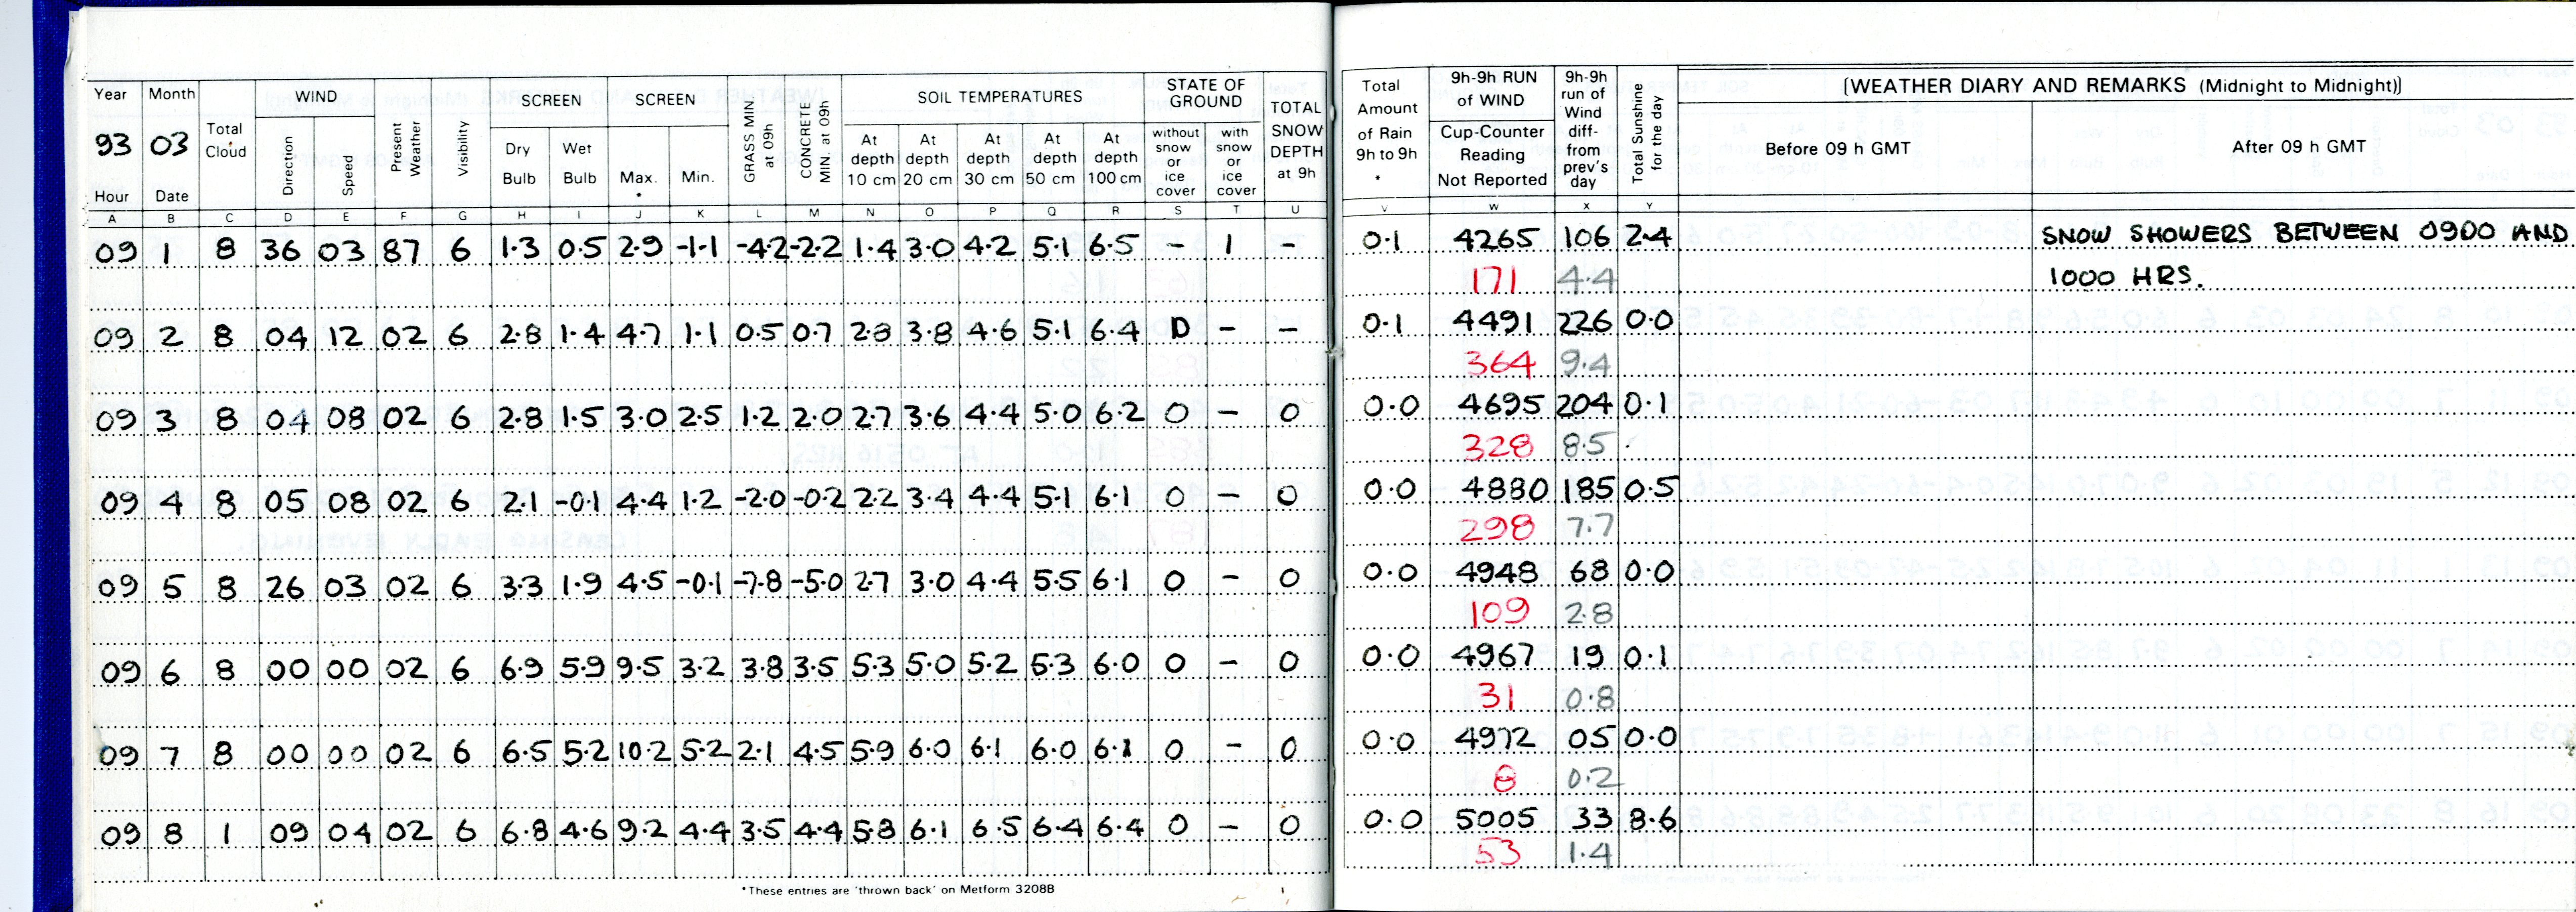 Year Month Total Cloud WIND Present Weather Visibility SCREEN SCREEN GRASS MIN. at 09h CONCRETE MIN. at 09h SOIL TEMPERATURES STATE OF GROUND TOTAL SNOW DEPTH at 9h Total Amount of Rain 9h to 9h * 9h-9h RUN of WIND 9h-9h run of Wind diff- from prev's day Total Sunshine for the day [WEATHER DIARY AND REMARKS (Midnight to Midnight)]
93 03 Direction Speed Dry Bulb Wet Bulb Max. * Min. At depth 10 cm At depth 20 cm At depth 30 cm At depth 50 cm At depth 100 cm without snow or ice cover with snow or ice cover Cup-Counter Reading Not Reported Before 09 h GMT After 09 h GMT
Hour Date
A B C D E F G H I J K L M N O P Q R S T U V W X Y
09 1 8 36 03 87 6 1.3 0.5 2.9 -1.1 -4.2 -2.2 1.4 3.0 4.2 5.1 6.5 - 1 - 0.1 4265 106 2.4 SNOW SHOWERS BETWEEN 0900 AND
171 4.4 1000 HRS.
09 2 8 04 12 02 6 2.8 1.4 4.7 1.1 0.5 0.7 2.8 3.8 4.6 5.1 6.4 D - - 0.1 4491 226 0.0
364 9.4
09 3 8 04 08 02 6 2.8 1.5 3.0 2.5 1.2 2.0 2.7 3.6 4.4 5.0 6.2 0 - 0 0.0 4695 204 0.1
328 8.5
09 4 8 05 08 02 6 2.1 -0.1 4.4 1.2 -2.0 -0.2 2.2 3.4 4.4 5.1 6.1 0 - 0 0.0 4880 185 0.5
298 7.7
09 5 8 26 03 02 6 3.3 1.9 4.5 -0.1 -7.8 -5.0 2.7 3.0 4.4 5.5 6.1 0 - 0 0.0 4948 68 0.0
109 2.8
09 6 8 00 00 02 6 6.9 5.9 9.5 3.2 3.8 3.5 5.3 5.0 5.2 5.3 6.0 0 - 0 0.0 4967 19 0.1
31 0.8
09 7 8 00 00 02 6 6.5 5.2 10.2 5.2 2.1 4.5 5.9 6.0 6.1 6.0 6.1 0 - 0 0.0 4972 05 0.0
8 0.2
09 8 1 09 04 02 6 6.8 4.6 9.2 4.4 3.5 4.4 5.8 6.1 6.5 6.4 6.4 0 - 0 0.0 5005 33 8.6
53 1.4
*These entries are 'thrown back' on Metform 3208B